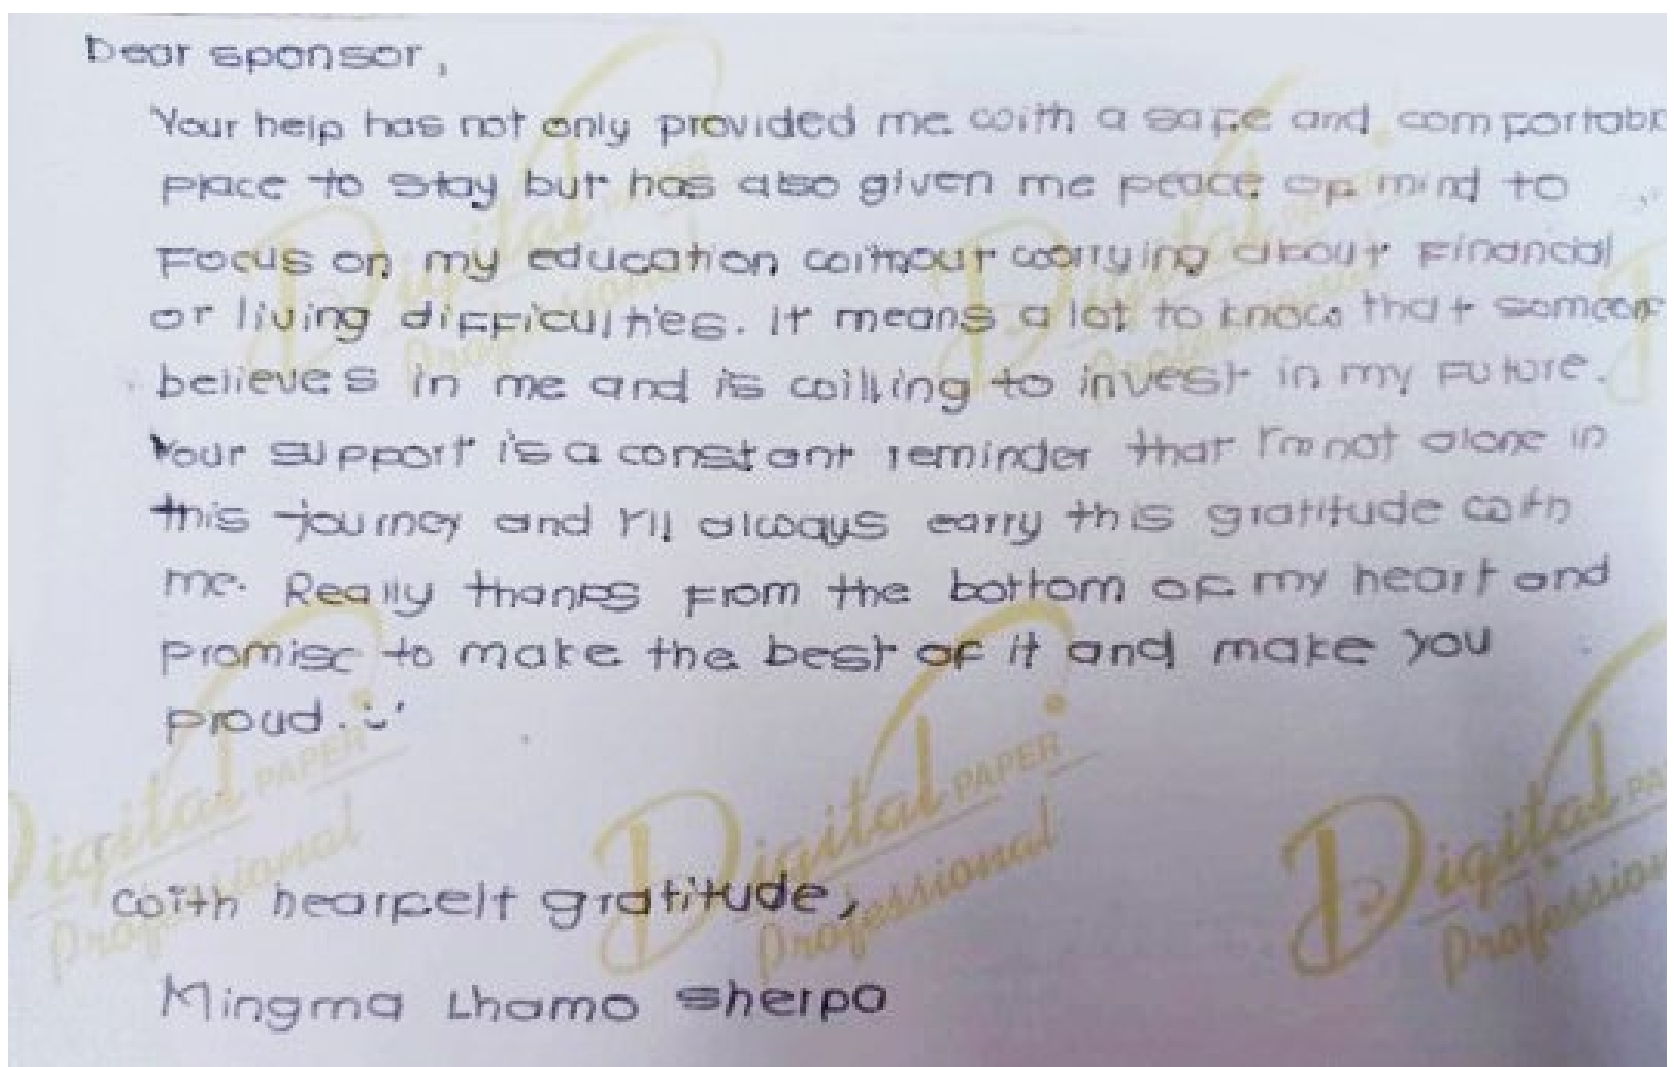 Dear sponsor,
Your help has not only provided me with a safe and comfortabl
place to stay but has also given me peace of mind to
Focus on my education without worrying about Financial
or living difficulties. It means a lot to know that someon
believes in me and is willing to invest in my future.
Your support is a constant reminder that I'm not alone in
this journey and I'll always carry this gratitude with
me. Really thanks from the bottom of my heart and
promise to make the best of it and make you
proud. :-'
With hearfelt gratitude,
Mingma Lhamo Sherpa
Digital PAPER
Professional